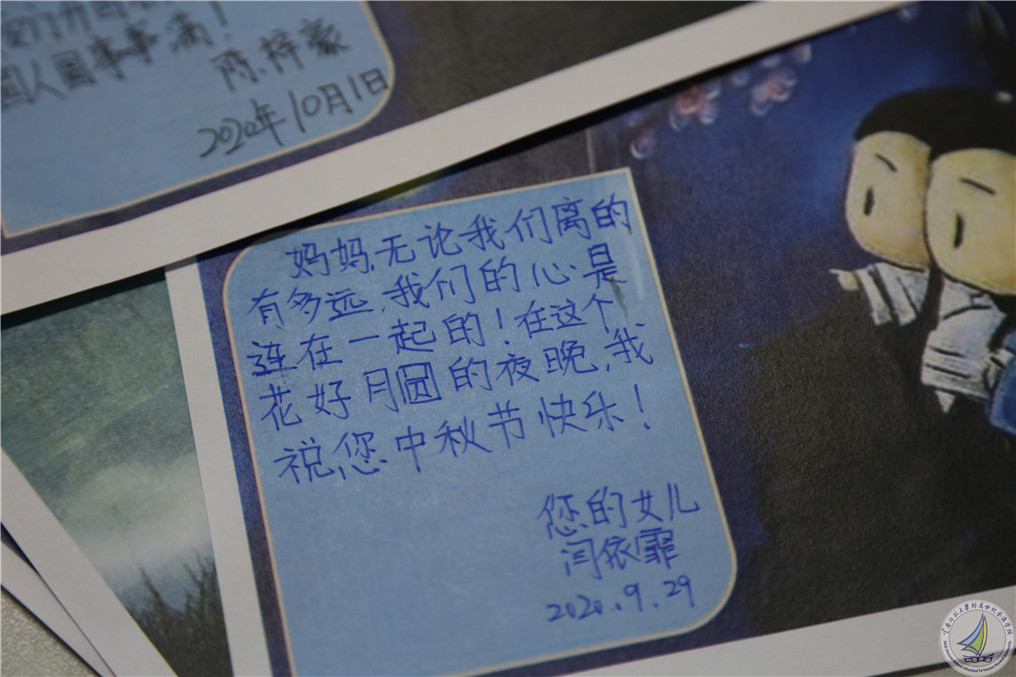 圆人圆事事满！
陈梓豪
2020年10月1日
妈妈，无论我们离的
有多远，我们的心是
连在一起的！在这个
花好月圆的夜晚，我
说您中秋节快乐！
您的女儿
闫依霏
2020.9.29